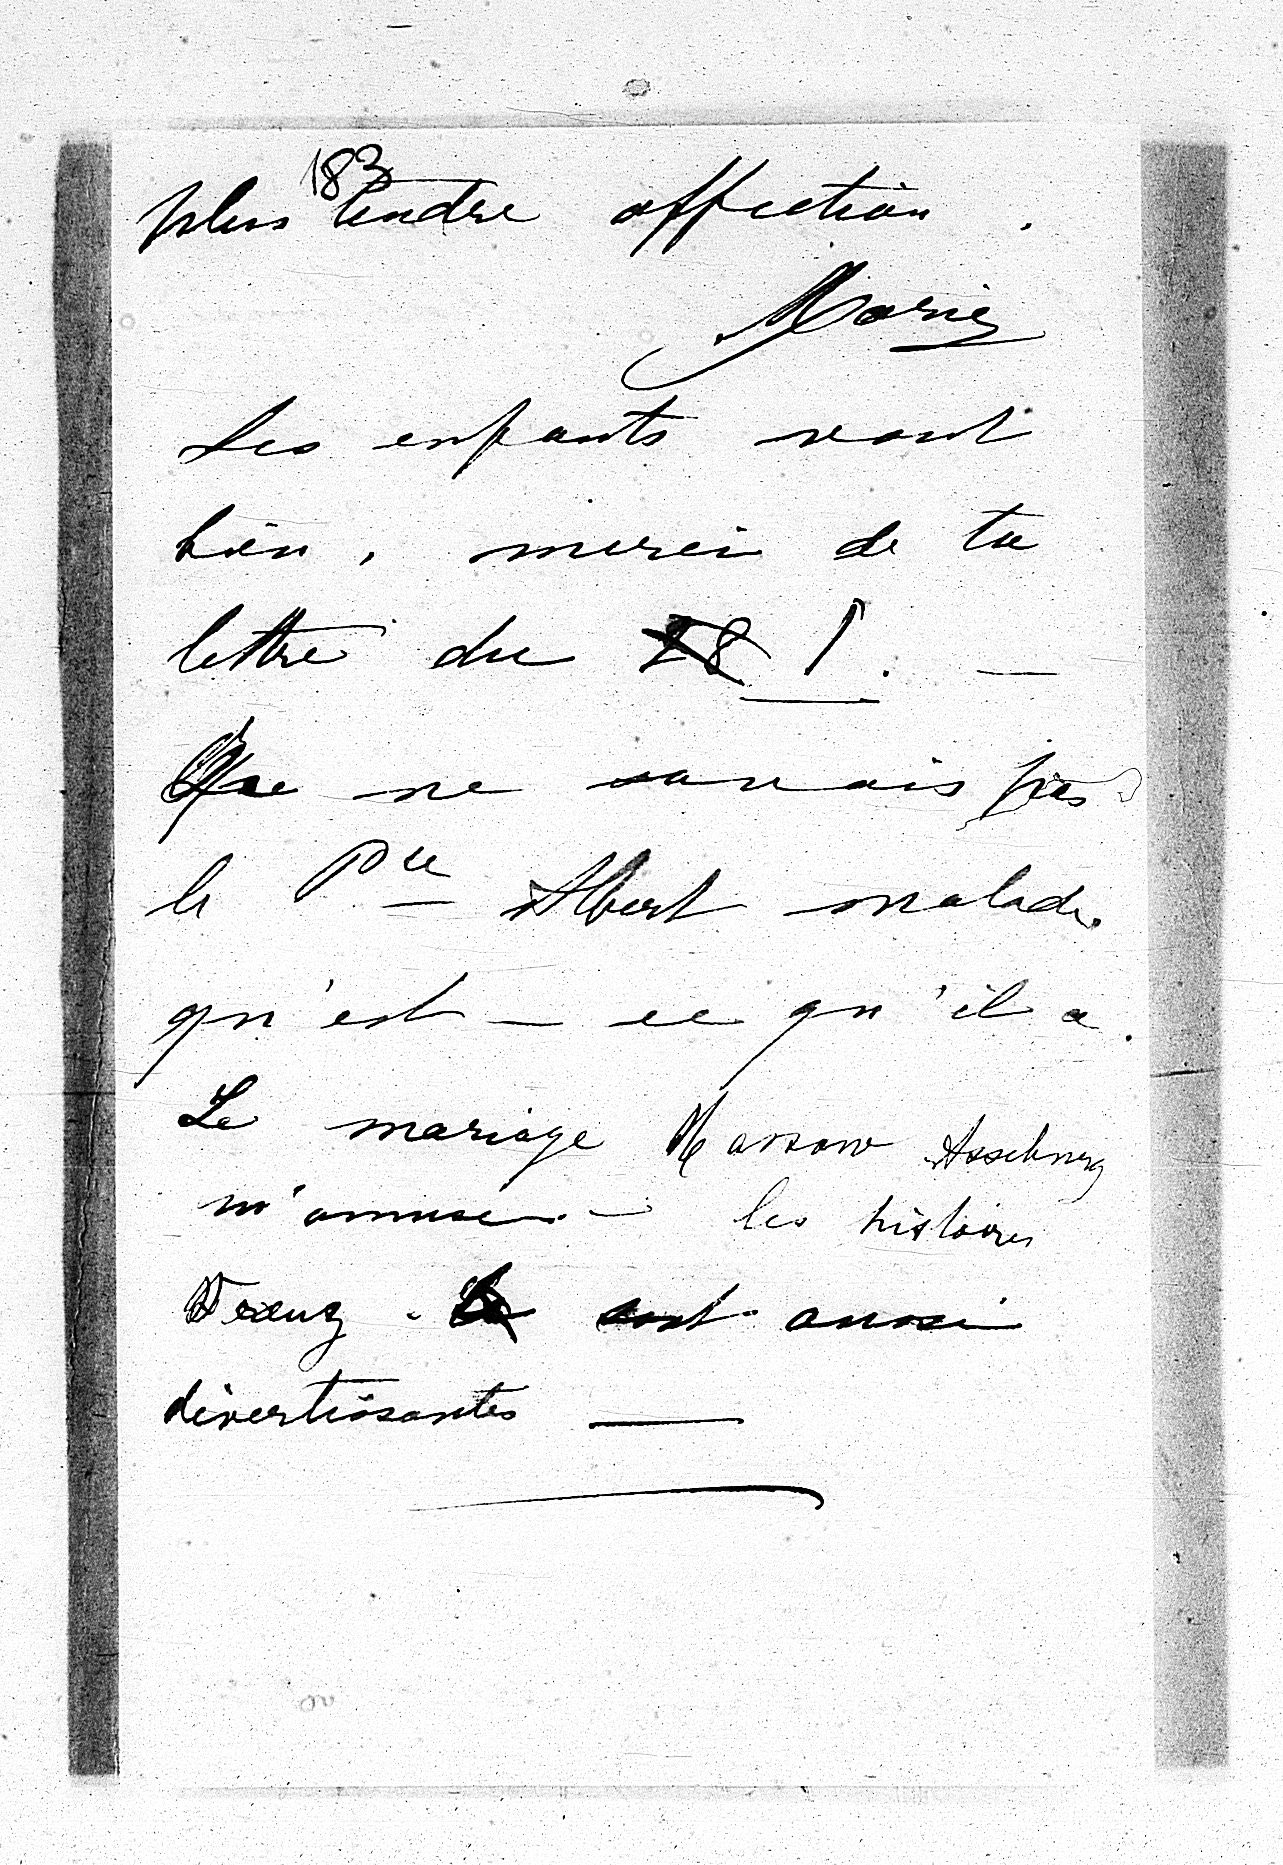 183
plus tendre affection.
Marie
Les enfants vont
bien, merci de ta
lettre du 28 1. —
Je ne savais pas
le Pce Albert malade.
qu'est-ce qu'il a.
Le mariage Asseburg
m'amuse. — les histoires
sont aussi
divertissantes —